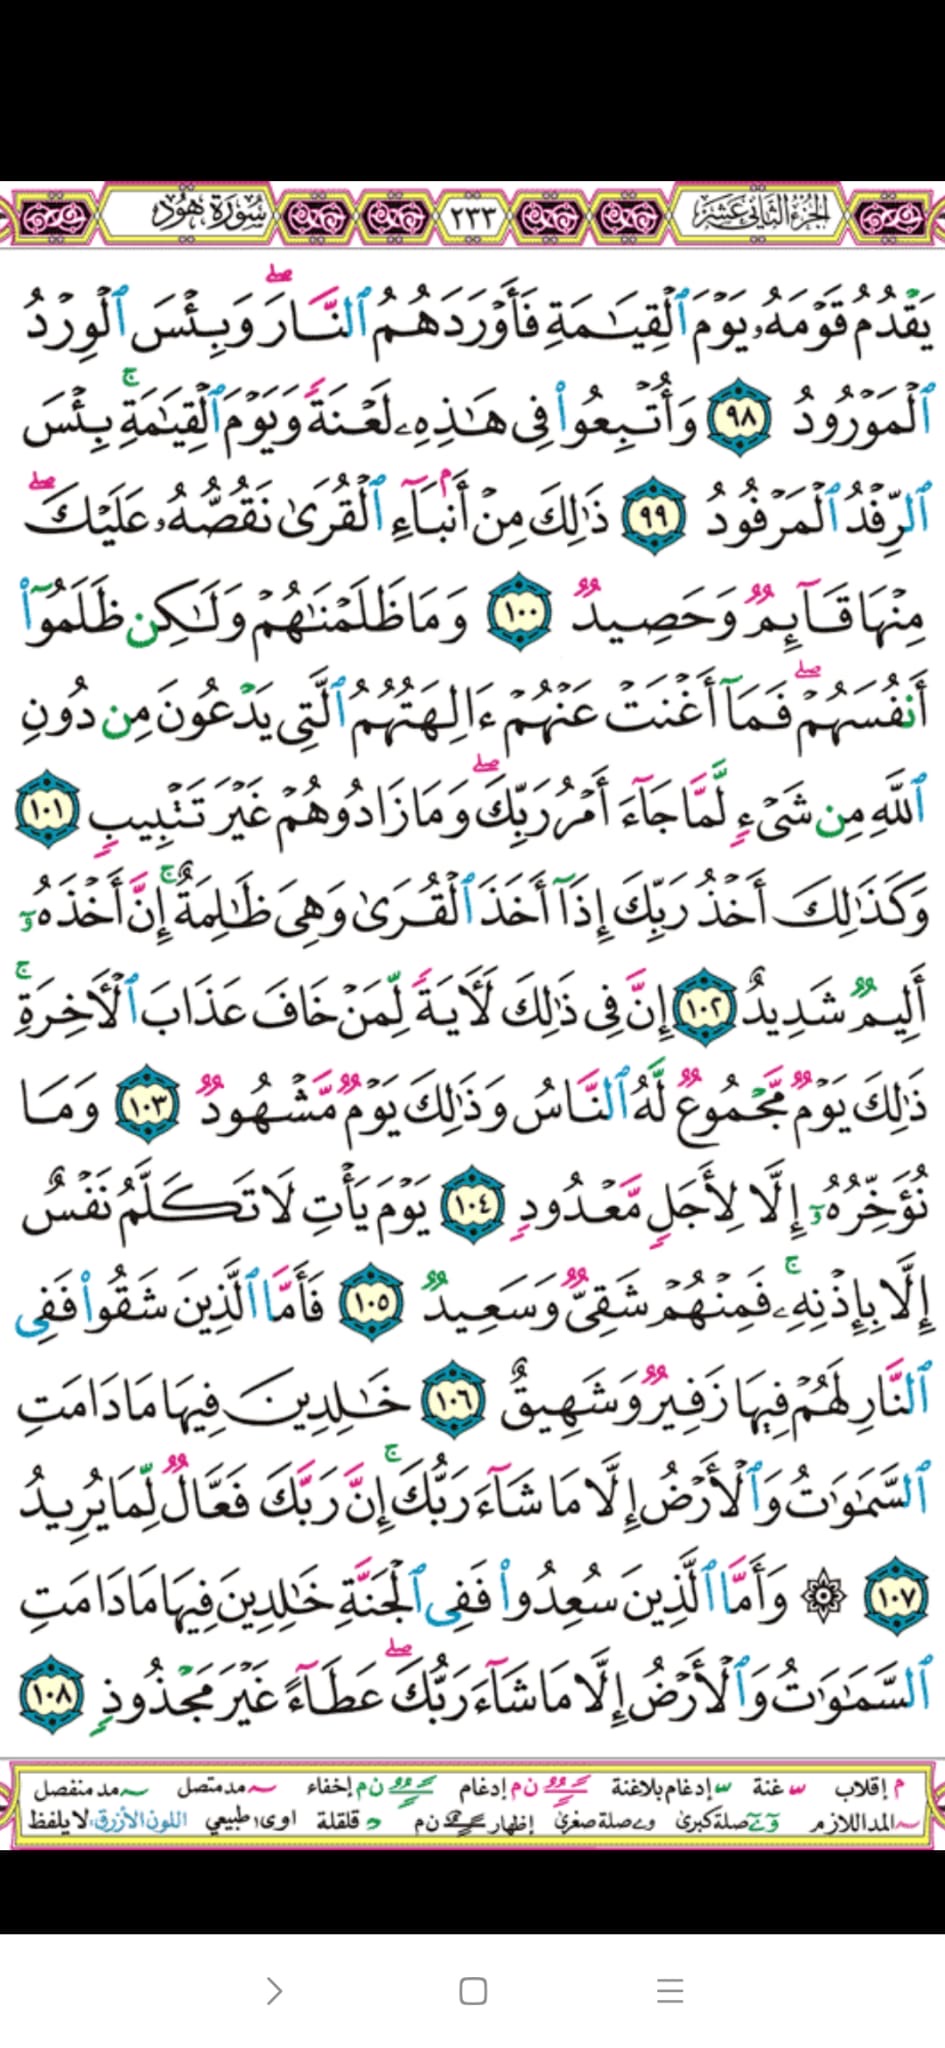 الجزء الثاني عشر ٢٣٣ سورة هود
يَقْدُمُ قَوْمَهُۥ يَوْمَ ٱلْقِيَـٰمَةِ فَأَوْرَدَهُمُ ٱلنَّارَ ۖ وَبِئْسَ ٱلْوِرْدُ
ٱلْمَوْرُودُ ٩٨ وَأُتْبِعُوا۟ فِى هَـٰذِهِۦ لَعْنَةً وَيَوْمَ ٱلْقِيَـٰمَةِ ۚ بِئْسَ
ٱلرِّفْدُ ٱلْمَرْفُودُ ٩٩ ذَٰلِكَ مِنْ أَنۢبَآءِ ٱلْقُرَىٰ نَقُصُّهُۥ عَلَيْكَ ۖ
مِنْهَا قَآئِمٌ وَحَصِيدٌ ١٠٠ وَمَا ظَلَمْنَـٰهُمْ وَلَـٰكِن ظَلَمُوٓا۟
أَنفُسَهُمْ ۖ فَمَآ أَغْنَتْ عَنْهُمْ ءَالِهَتُهُمُ ٱلَّتِى يَدْعُونَ مِن دُونِ
ٱللَّهِ مِن شَىْءٍ لَّمَّا جَآءَ أَمْرُ رَبِّكَ ۖ وَمَا زَادُوهُمْ غَيْرَ تَتْبِيبٍ ١٠١
وَكَذَٰلِكَ أَخْذُ رَبِّكَ إِذَآ أَخَذَ ٱلْقُرَىٰ وَهِىَ ظَـٰلِمَةٌ ۚ إِنَّ أَخْذَهُۥٓ
أَلِيمٌ شَدِيدٌ ١٠٢ إِنَّ فِى ذَٰلِكَ لَـَٔايَةً لِّمَنْ خَافَ عَذَابَ ٱلْـَٔاخِرَةِ ۚ
ذَٰلِكَ يَوْمٌ مَّجْمُوعٌ لَّهُ ٱلنَّاسُ وَذَٰلِكَ يَوْمٌ مَّشْهُودٌ ١٠٣ وَمَا
نُؤَخِّرُهُۥٓ إِلَّا لِأَجَلٍ مَّعْدُودٍ ١٠٤ يَوْمَ يَأْتِ لَا تَكَلَّمُ نَفْسٌ
إِلَّا بِإِذْنِهِۦ ۚ فَمِنْهُمْ شَقِىٌّ وَسَعِيدٌ ١٠٥ فَأَمَّا ٱلَّذِينَ شَقُوا۟ فَفِى
ٱلنَّارِ لَهُمْ فِيهَا زَفِيرٌ وَشَهِيقٌ ١٠٦ خَـٰلِدِينَ فِيهَا مَا دَامَتِ
ٱلسَّمَـٰوَٰتُ وَٱلْأَرْضُ إِلَّا مَا شَآءَ رَبُّكَ ۚ إِنَّ رَبَّكَ فَعَّالٌ لِّمَا يُرِيدُ
١٠٧ ۞ وَأَمَّا ٱلَّذِينَ سُعِدُوا۟ فَفِى ٱلْجَنَّةِ خَـٰلِدِينَ فِيهَا مَا دَامَتِ
ٱلسَّمَـٰوَٰتُ وَٱلْأَرْضُ إِلَّا مَا شَآءَ رَبُّكَ ۖ عَطَآءً غَيْرَ مَجْذُوذٍ ١٠٨
م إقلاب غنة إدغام بلاغنة ن م إدغام ن م إخفاء مد متصل مد منفصل
المد اللازم صلة كبرى صلة صغرى إظهار ن م قلقلة اوى طبيعي اللون الأزرق: لا يلفظ